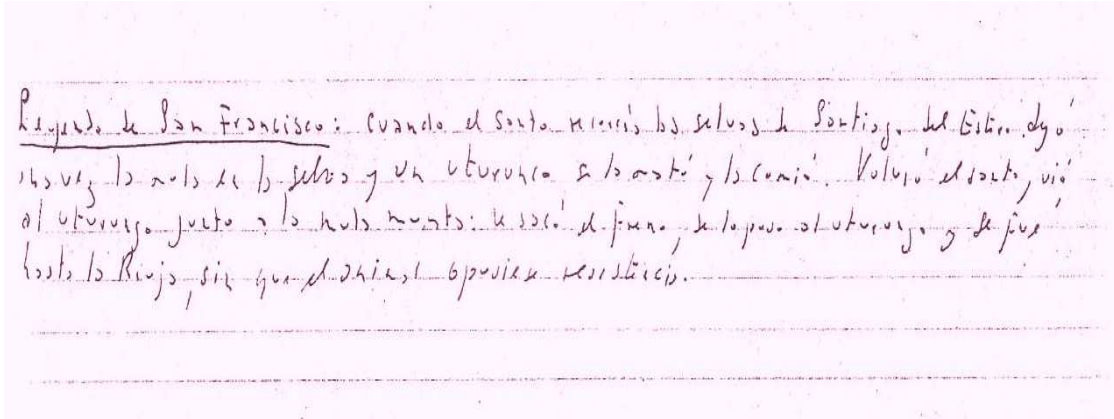 Leyenda de San Francisco: Cuando el Santo recorría las selvas de Santiago del Estero, dejó
una vez la mula en la selva y un uturunco se la mató y la comió. Volvió el santo, vió
al uturungo junto a la mula muerta: le sacó el freno, se lo puso al uturungo y se fué
hasta la Rioja, sin que el animal opusiese resistencia.